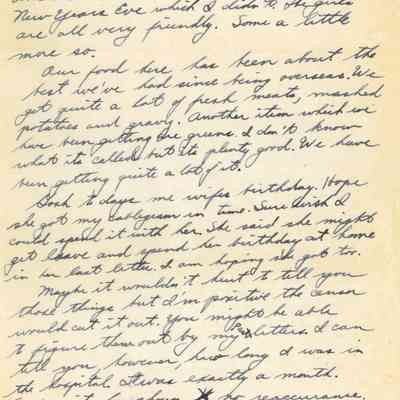 New Years Eve which I didn't. The girls
are all very friendly. Some a little
more so.
Our food here has been about the
best we've had since being overseas. We
get quite a lot of fresh meats, mashed
potatoes and gravy. Another item which we
have been getting are greens. I don't know
what its called but its plenty good. We have
been getting quite a lot of it.
Gosh todays me wifes birthday. Hope
she got my cablegram in time. Sure wish I
could spend it with her. She said she might
get leave and spend her birthday at home
in her last letter. I am hoping she got too.
Maybe it wouldn't hurt to tell you
those things but I'm positive the censor
would cut it out. You might be able
to figure them out by my letters. I can
tell you, however, how long I was in
the hospital. It was exactly a month.
no reaccurance.